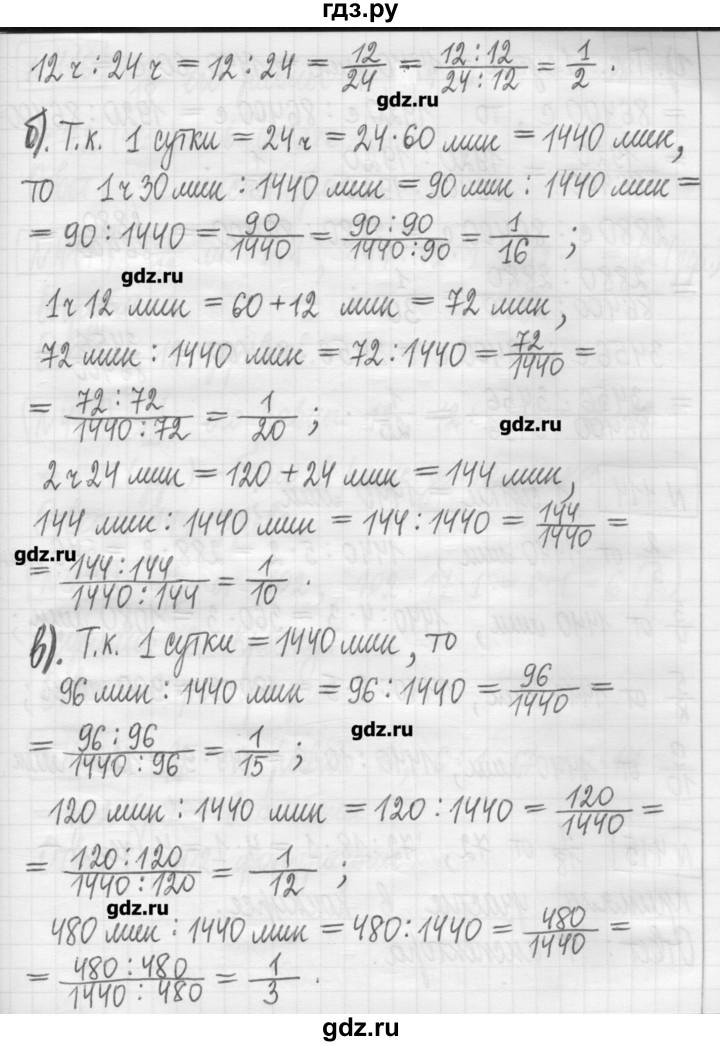 гдз.ру
12 ч : 24 ч = 12 : 24 = 12/24 = 12:12/24:12 = 1/2 .
gdz.ru
б). Т.к. 1 сутки = 24 ч = 24·60 мин = 1440 мин,
то 1 ч 30 мин : 1440 мин = 90 мин : 1440 мин =
= 90 : 1440 = 90/1440 = 90:90/1440:90 = 1/16 ;
gdz.ru
1 ч 12 мин = 60 + 12 мин = 72 мин,
72 мин : 1440 мин = 72 : 1440 = 72/1440 =
= 72:72/1440:72 = 1/20 ;
gdz.ru
2 ч 24 мин = 120 + 24 мин = 144 мин,
144 мин : 1440 мин = 144 : 1440 = 144/1440 =
gdz.ru
= 144:144/1440:144 = 1/10 .
в). Т.к. 1 сутки = 1440 мин, то
96 мин : 1440 мин = 96 : 1440 = 96/1440 =
gdz.ru
= 96:96/1440:96 = 1/15 ;
120 мин : 1440 мин = 120 : 1440 = 120/1440 =
= 120:120/1440:120 = 1/12 ;
gdz.ru
480 мин : 1440 мин = 480 : 1440 = 480/1440 =
= 480:480/1440:480 = 1/3 .
gdz.ru